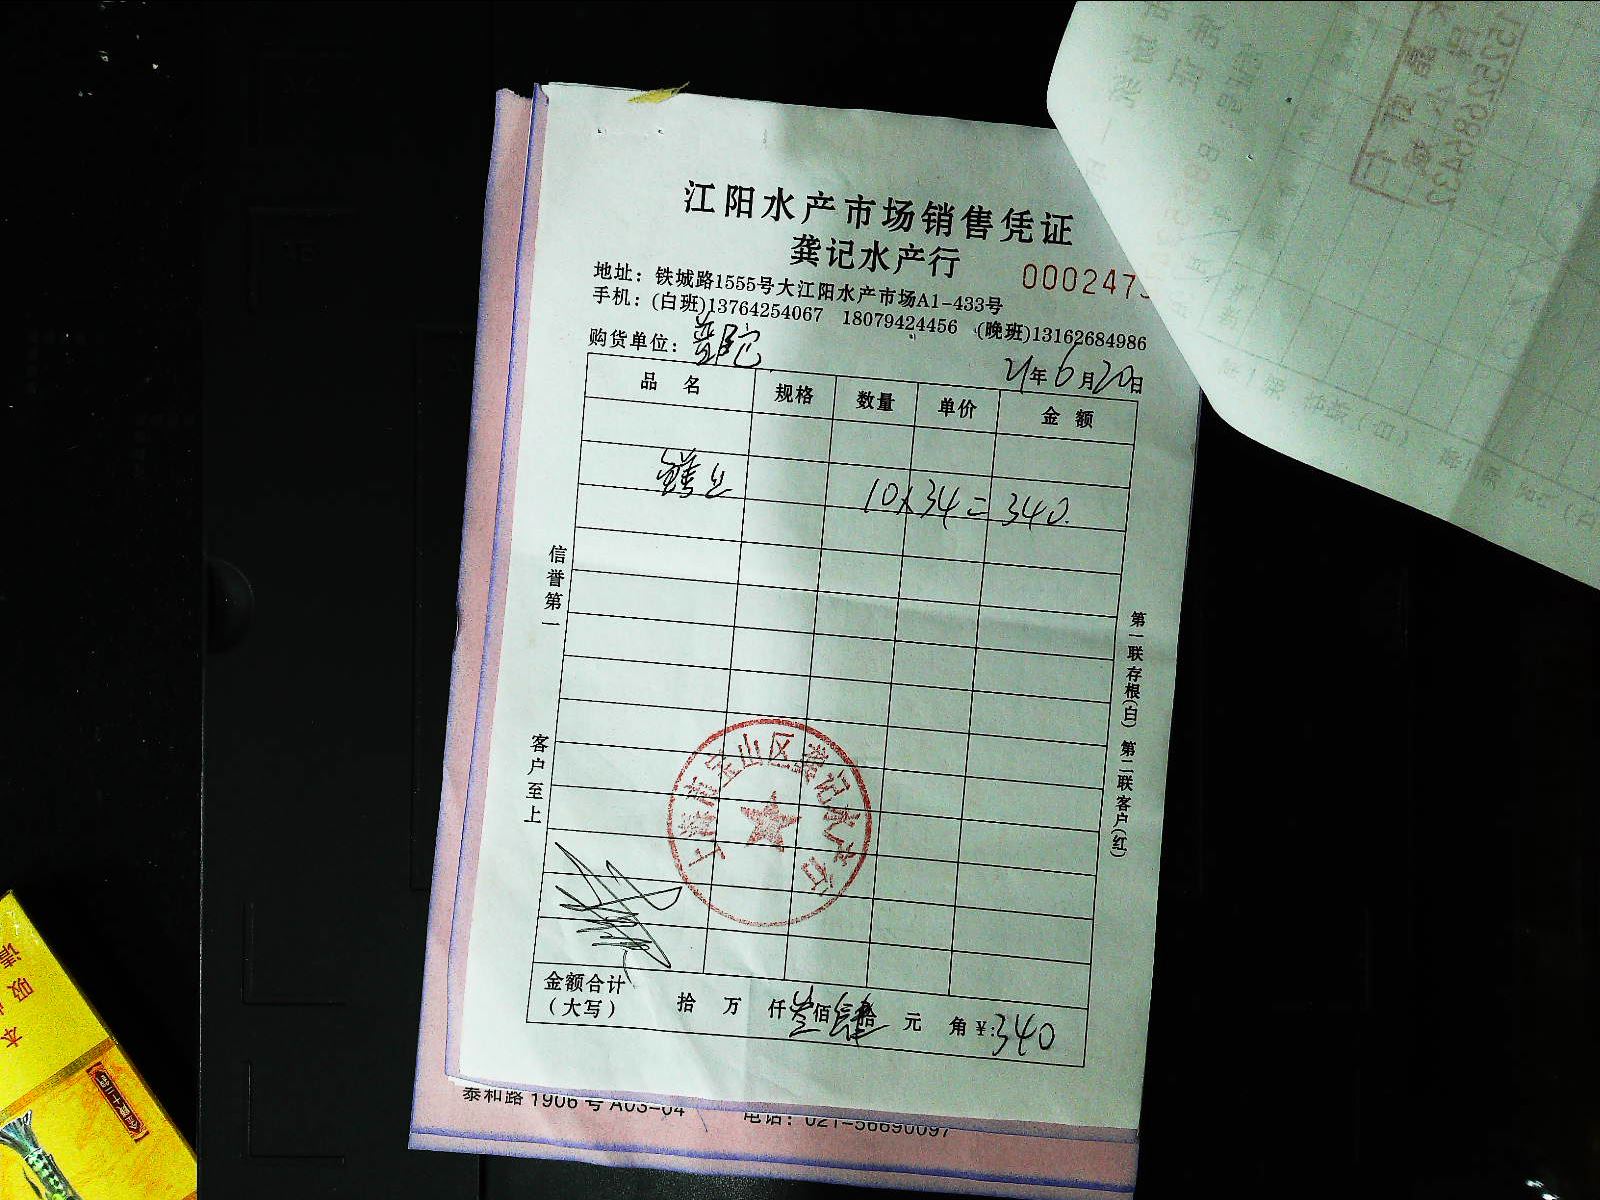 江阳水产市场销售凭证
龚记水产行
0002475
地址：铁城路1555号大江阳水产市场A1-433号
手机：(白班)13764254067 18079424456 (晚班)13162684986
购货单位：普陀
21年6月20日
品名 规格 数量 单价 金额
10×34=340.
信誉第一
客户至上
第一联存根(白) 第二联客户(红)
上海市宝山区龚记水产行
金额合计
（大写）
拾 万 仟叁佰肆拾 元 角 ¥:340
泰和路1906号A03-04 电话：021-56690097
15252685432